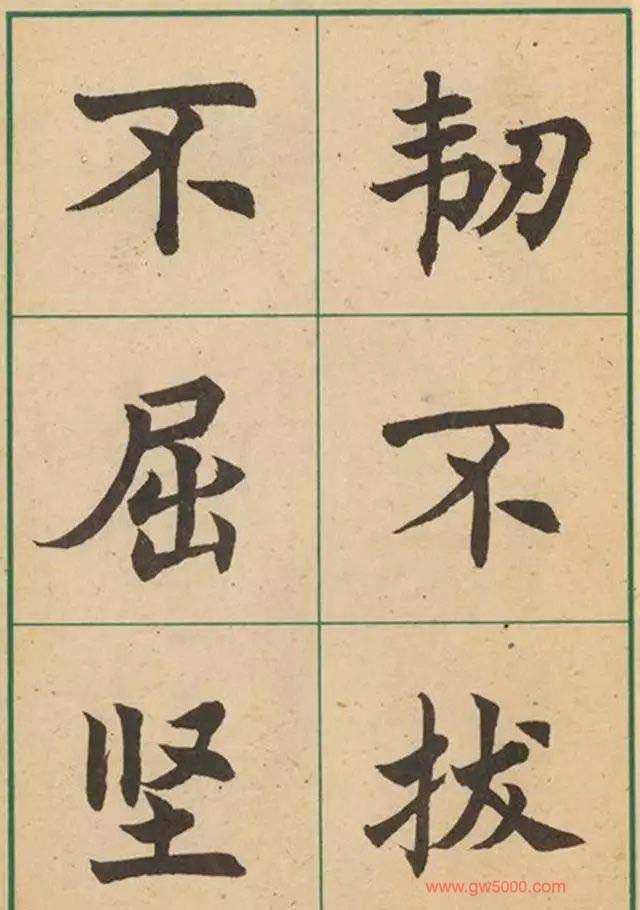 韧不拔
不屈坚
www.gw5000.com